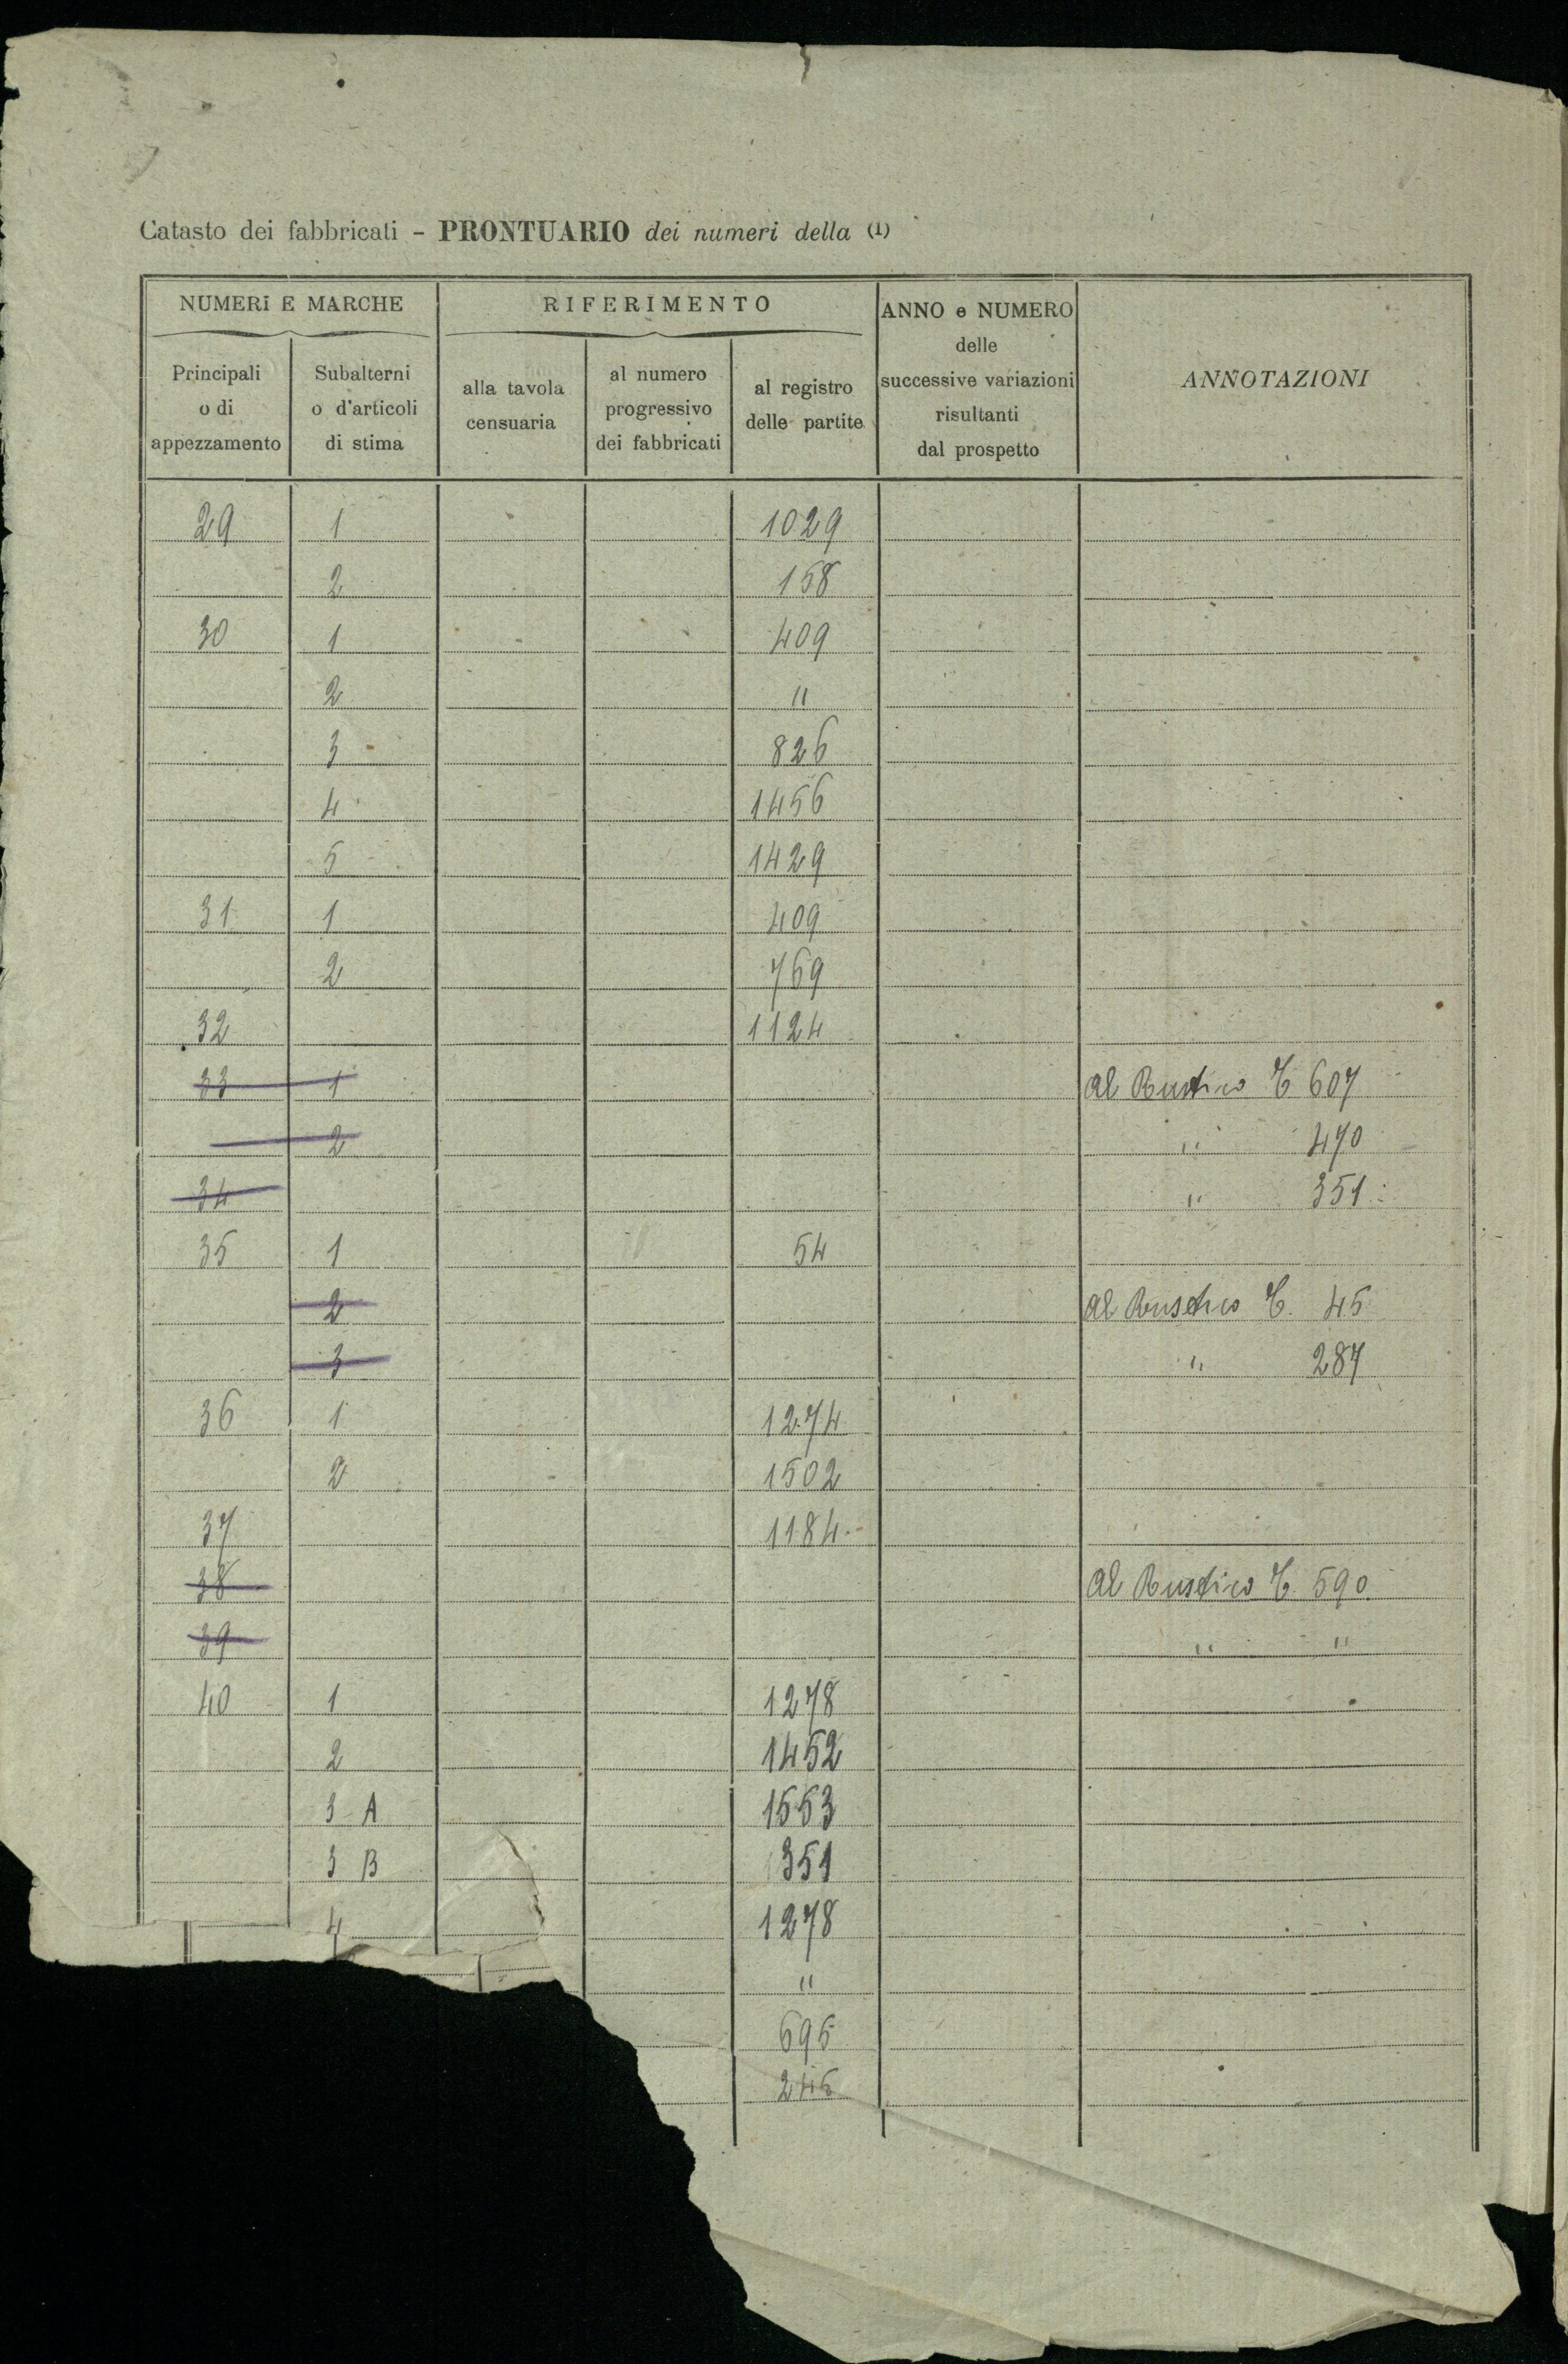 Catasto dei fabbricati - PRONTUARIO dei numeri della (1)
NUMERI E MARCHE
RIFERIMENTO
ANNO e NUMERO
delle
successive variazioni
risultanti
dal prospetto
ANNOTAZIONI
Principali
o di
appezzamento
Subalterni
o d'articoli
di stima
alla tavola
censuaria
al numero
progressivo
dei fabbricati
al registro
delle partite
29 1 1029
2 158
30 1 409
2 "
3 826
4 1456
5 1429
31 1 409
2 769
32 1124
33 1 al Rustico C 607
2 " 470
34 " 351
35 1 54
2 al Rustico C. 45
3 " 287
36 1 1274
2 1502
37 1184
38 al Rustico C. 590
39 " "
40 1 1278
2 1452
3 A 1553
3 B 351
4 1278
"
695
245